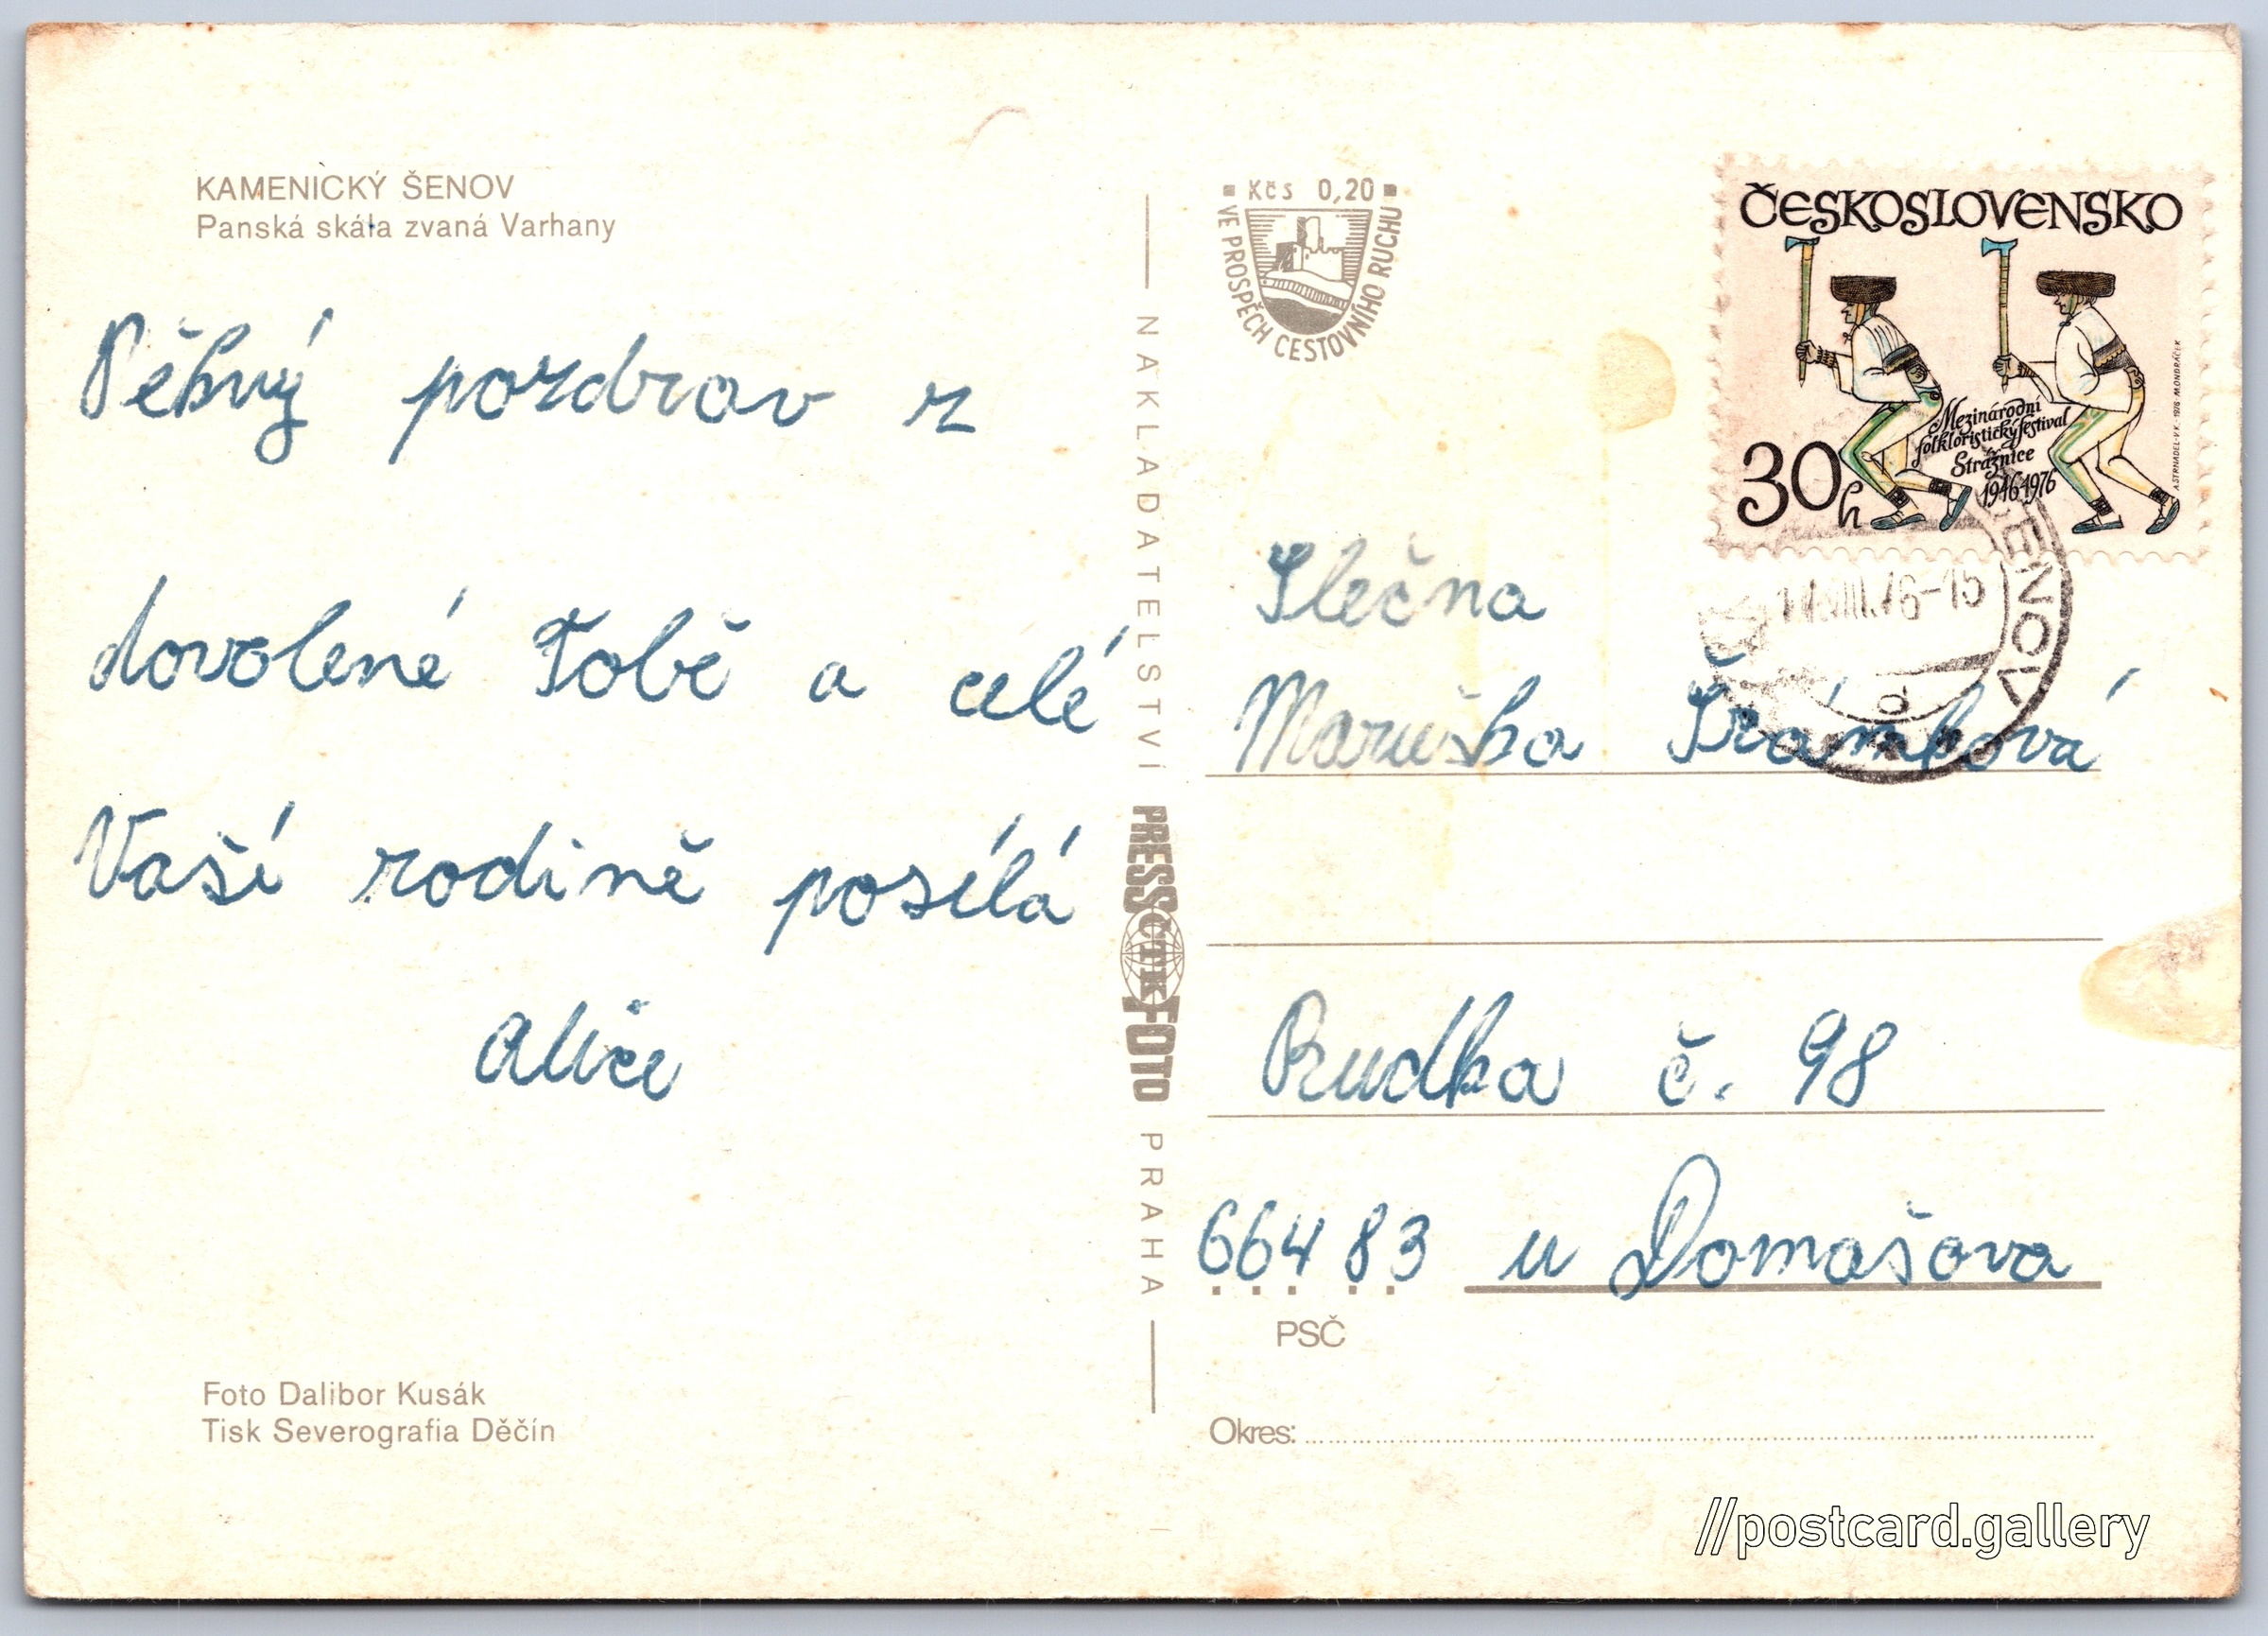 KAMENICKÝ ŠENOV
Panská skála zvaná Varhany
Pěkný pozdrav z
dovolené Tobě a celé
Vaší rodině posílá
Alice
Foto Dalibor Kusák
Tisk Severografia Děčín
NAKLADATELSTVÍ PRESSFOTO PRAHA
ČTK
Kčs 0,20
VE PROSPĚCH CESTOVNÍHO RUCHU
ČESKOSLOVENSKO
Mezinárodní
folkloristický festival
Strážnice
1946-1976
30h
A. STRNADEL-V.K. 1976 M. ONDRÁČEK
ENOV
VIII.76-15
d
Slečna
Maruška Šrámková
Rudka č. 98
664 83 u Domašova
PSČ
Okres:
//postcard.gallery